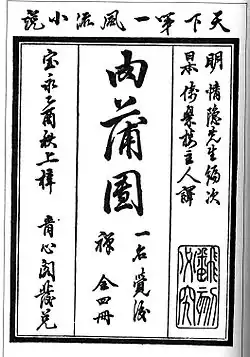 天下第一風流小說
明 情隐先生編次
日本 倚翠楼主人譯
肉蒲團
一名覺後禪 全四冊
宝永乙酉秋上梓 青心閣發兌